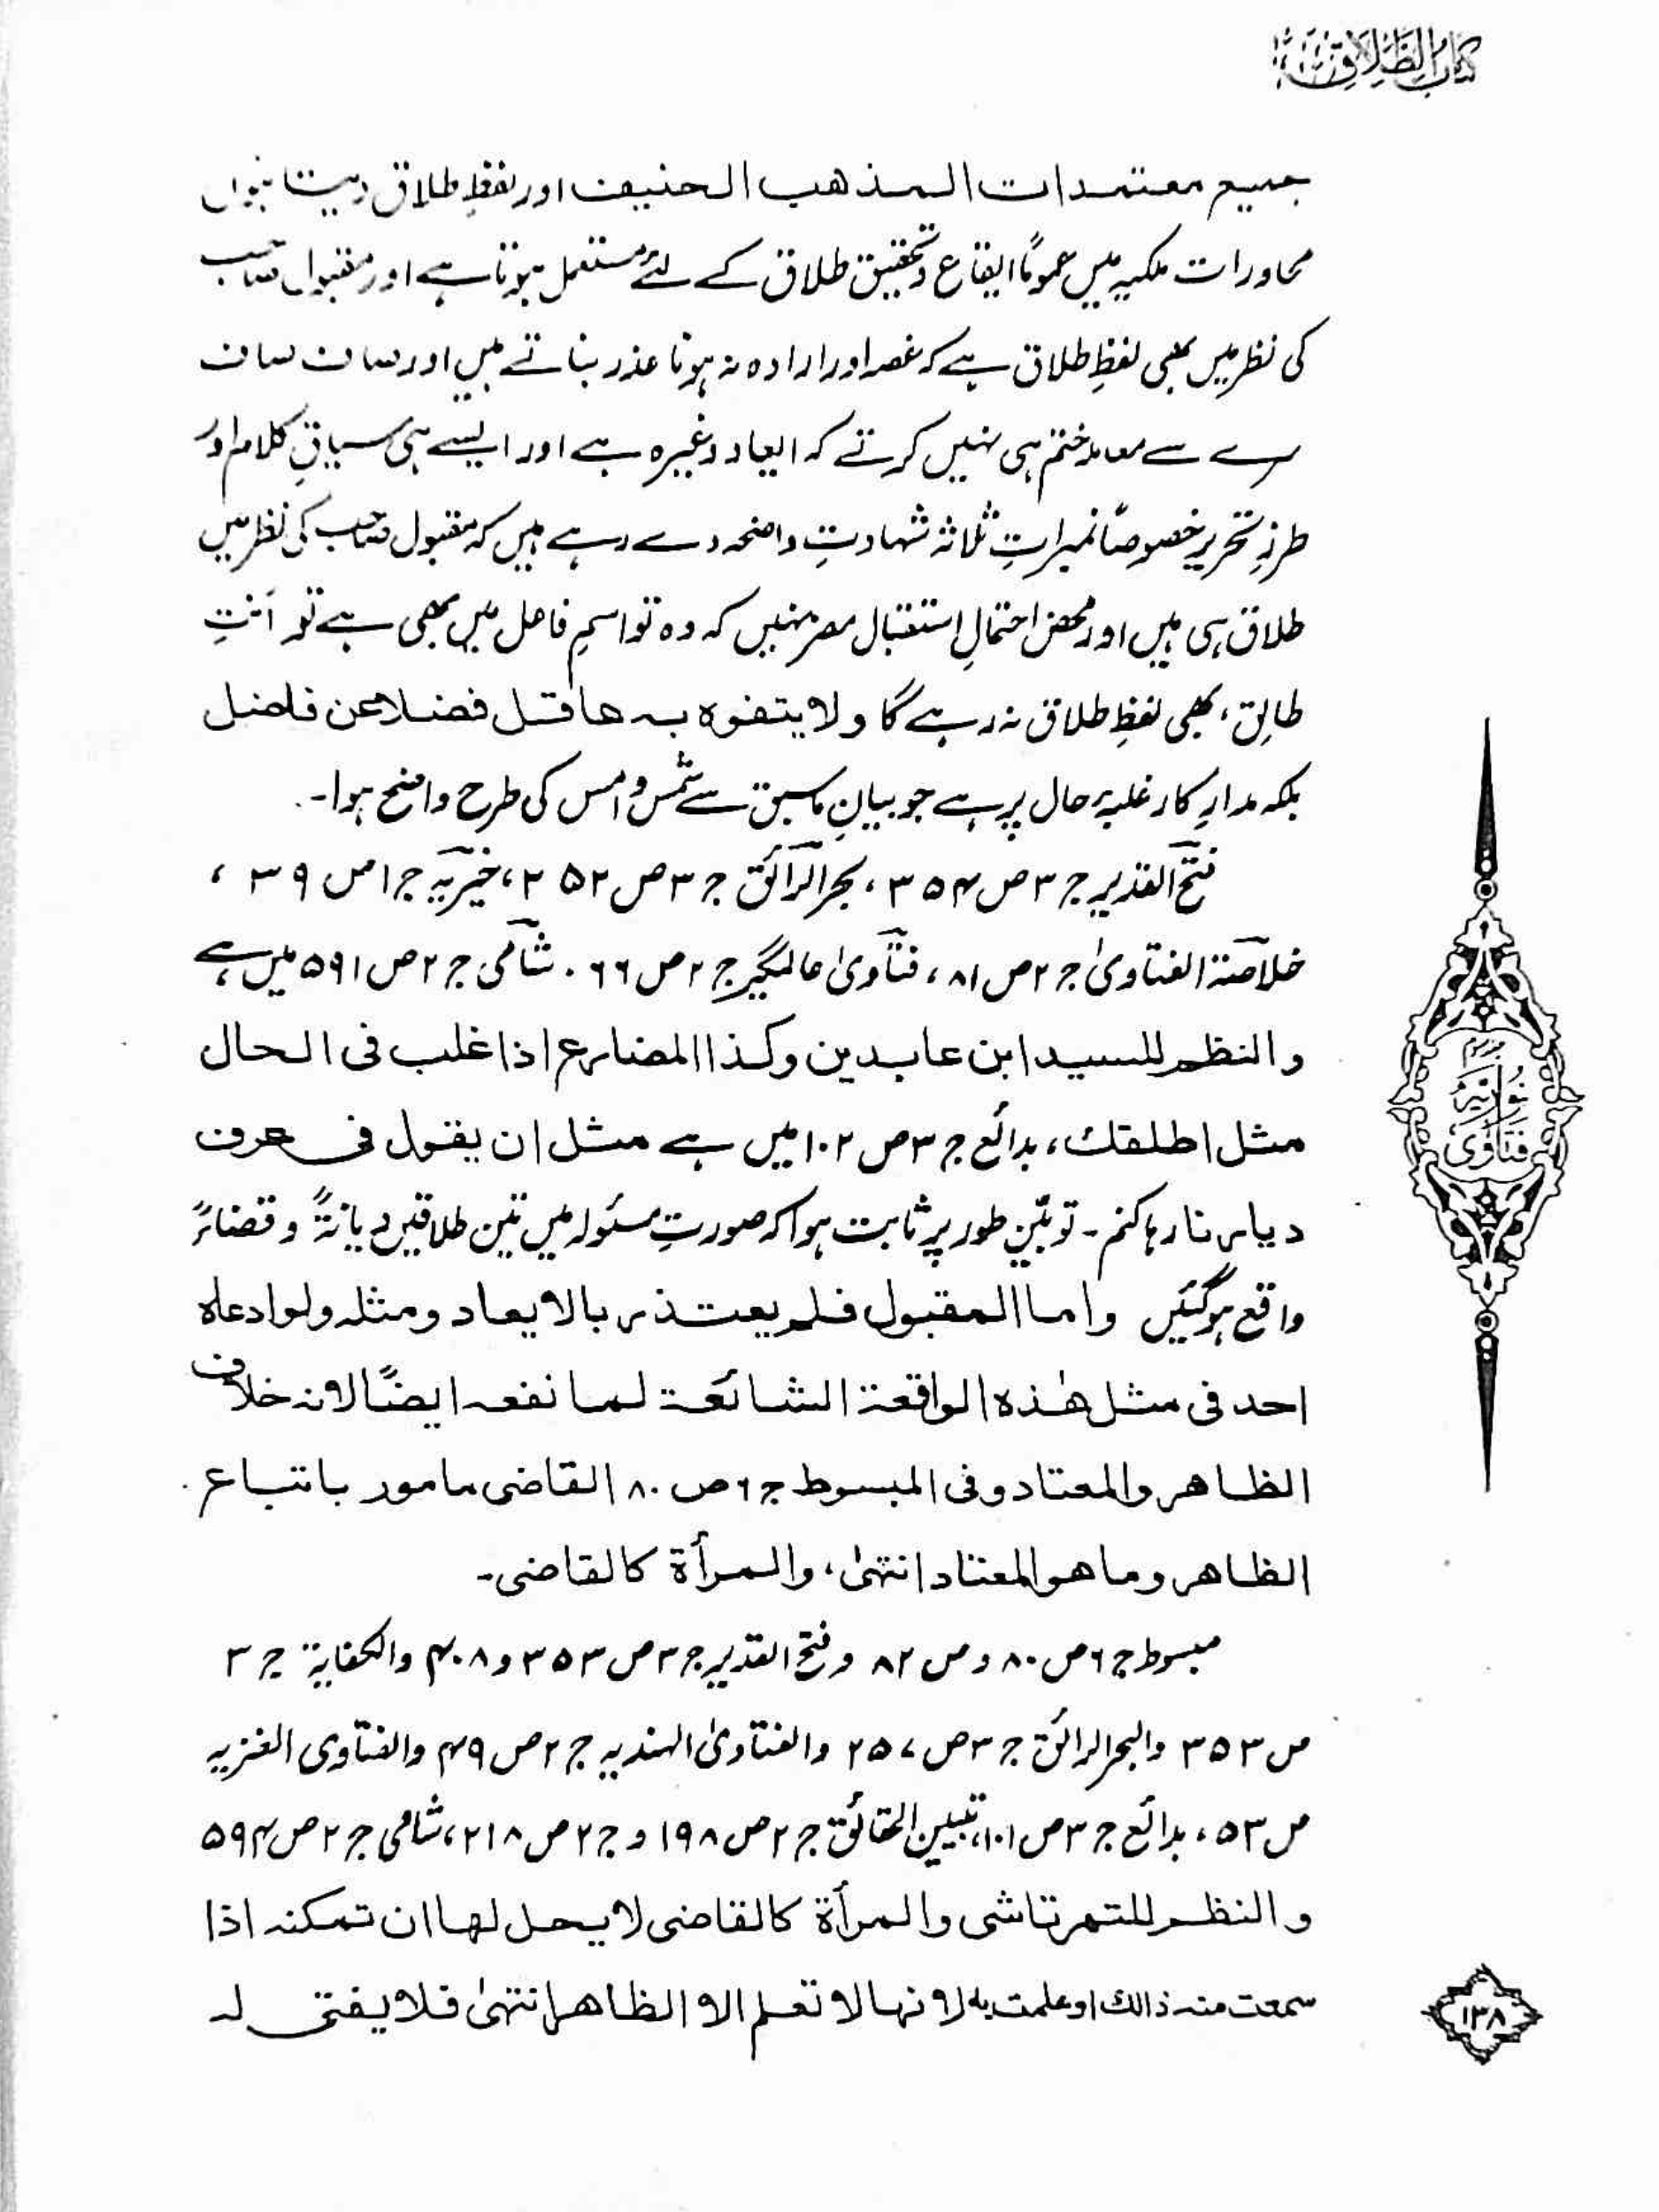 کتاب الطلاق
جمیع معتمدات المذهب الحنیف اور لفظِ طلاق دیتا ہوں
محاورات ملکیہ میں عموماً ایقاع و تحقیق طلاق کے لئے مستعمل ہوتا ہے اور مقبول صاحب
کی نظر میں بھی لفظِ طلاق ہے کہ غصہ اور ارادہ نہ ہونا عذر بناتے ہیں اور صاف صاف
سرے سے معاملہ ختم ہی نہیں کرتے کہ ایعاد وغیرہ ہے اور ایسے ہی سیاقِ کلام اور
طرزِ تحریر خصوصاً نمبراتِ ثلاثہ شہادتِ واضحہ دے رہے ہیں کہ مقبول صاحب کی نظر میں
طلاق ہی ہیں اور محض احتمالِ استقبال مضر نہیں کہ وہ تو اسمِ فاعل میں بھی ہے تو اَنْتِ
طالِق، بھی لفظِ طلاق نہ رہے گا ولا یتفوه به عاقل فضلا عن فاضل
بلکہ مدارِ کار غلبۂ حال پر ہے جو بیانِ ماسبق سے شمس و امس کی طرح واضح ہوا۔
فتح القدیر ج ۳ ص ۳۵۴، بحر الرائق ج ۳ ص ۲۵۲، خیریہ ج ۱ ص ۳۹،
خلاصۃ الفتاویٰ ج ۲ ص ۸۱، فتاویٰ عالمگیر ج ۲ ص ۶۶۔ شامی ج ۲ ص ۵۹۱ میں ہے
والنظم للسید ابن عابدین وکذا المضارع اذا غلب فی الحال
مثل اطلقك، بدائع ج ۳ ص ۱۰۲ میں ہے مثل ان یقول فی عرف
دیارنا رہا کنم۔ تو بیّن طور پر ثابت ہوا کہ صورتِ مسئولہ میں تین طلاقیں دیانۃً و قضاءً
واقع ہو گئیں واما المقبول فلم یعتذر بالایعاد ومثله ولو ادعاه
احد فی مثل هٰذه الواقعة الشائعة لما نفعه ایضًا لانه خلاف
الظاهر والمعتاد وفی المبسوط ج ۶ ص ۸۰ القاضی مامور باتباع
الظاهر وما هو المعتاد انتهیٰ، والمرأة کالقاضی۔
مبسوط ج ۶ ص ۸۰ و ص ۸۲ و فتح القدیر ج ۳ ص ۳۵۳ و ۴۰۸ والکفایۃ ج ۳
ص ۳۵۳ والبحر الرائق ج ۳ ص ۲۵۷ والفتاویٰ الہندیہ ج ۲ ص ۴۹ والفتاوی الغزیہ
ص ۵۳، بدائع ج ۳ ص ۱۰۱، تبیین الحقائق ج ۲ ص ۱۹۸ و ج ۲ ص ۲۱۸، شامی ج ۲ ص ۵۹۴
والنظم للتمرتاشی والمرأة کالقاضی لا یحل لها ان تمکنه اذا
سمعت منه ذالك او علمت به لانها لا تعلم الا الظاهر انتهیٰ فلا یفتی له
فتاویٰ نوریہ
۱۳۸